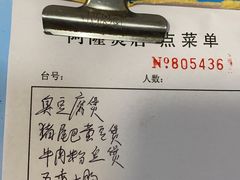 煲店 点菜单
№805436
台号： 人数：
臭豆腐煲
猪尾巴黄豆煲
牛肉粉丝煲